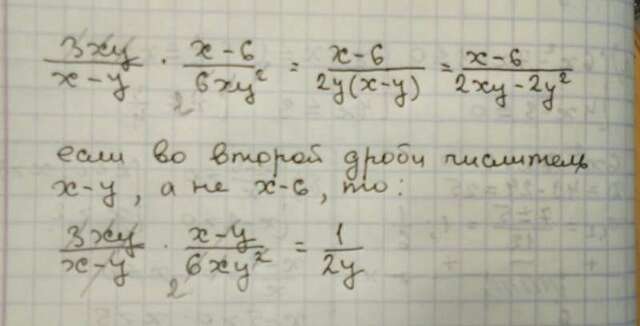 3xy/x-y · x-6/6xy² = x-6/2y(x-y) = x-6/2xy-2y²
2
если во второй дроби числитель
x-y, а не x-6, то:
3xy/x-y · x-y/6xy² = 1/2y
2